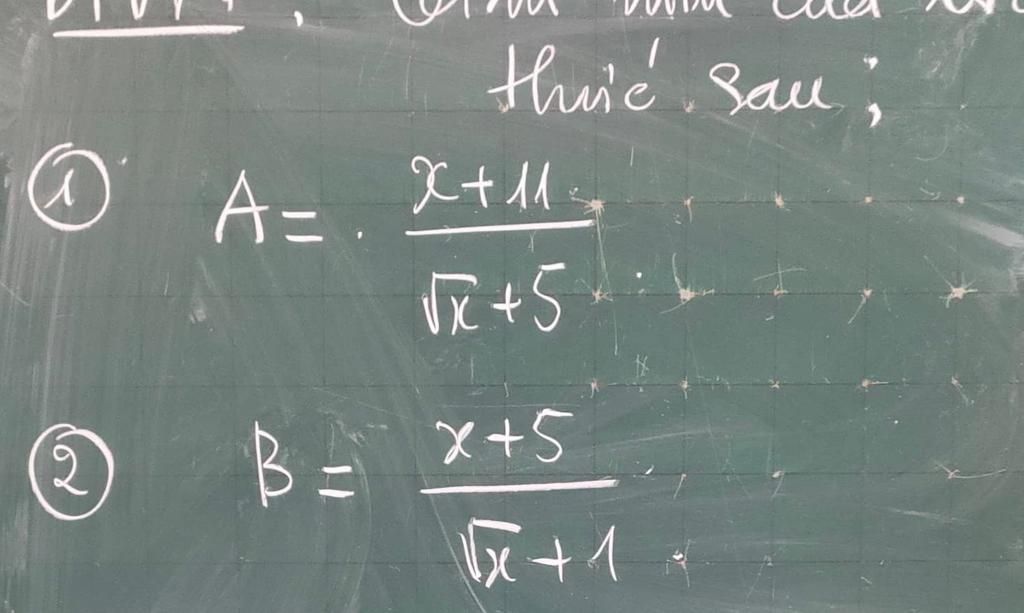 thức sau ;
① A = x+11 / √x+5
② B = x+5 / √x+1